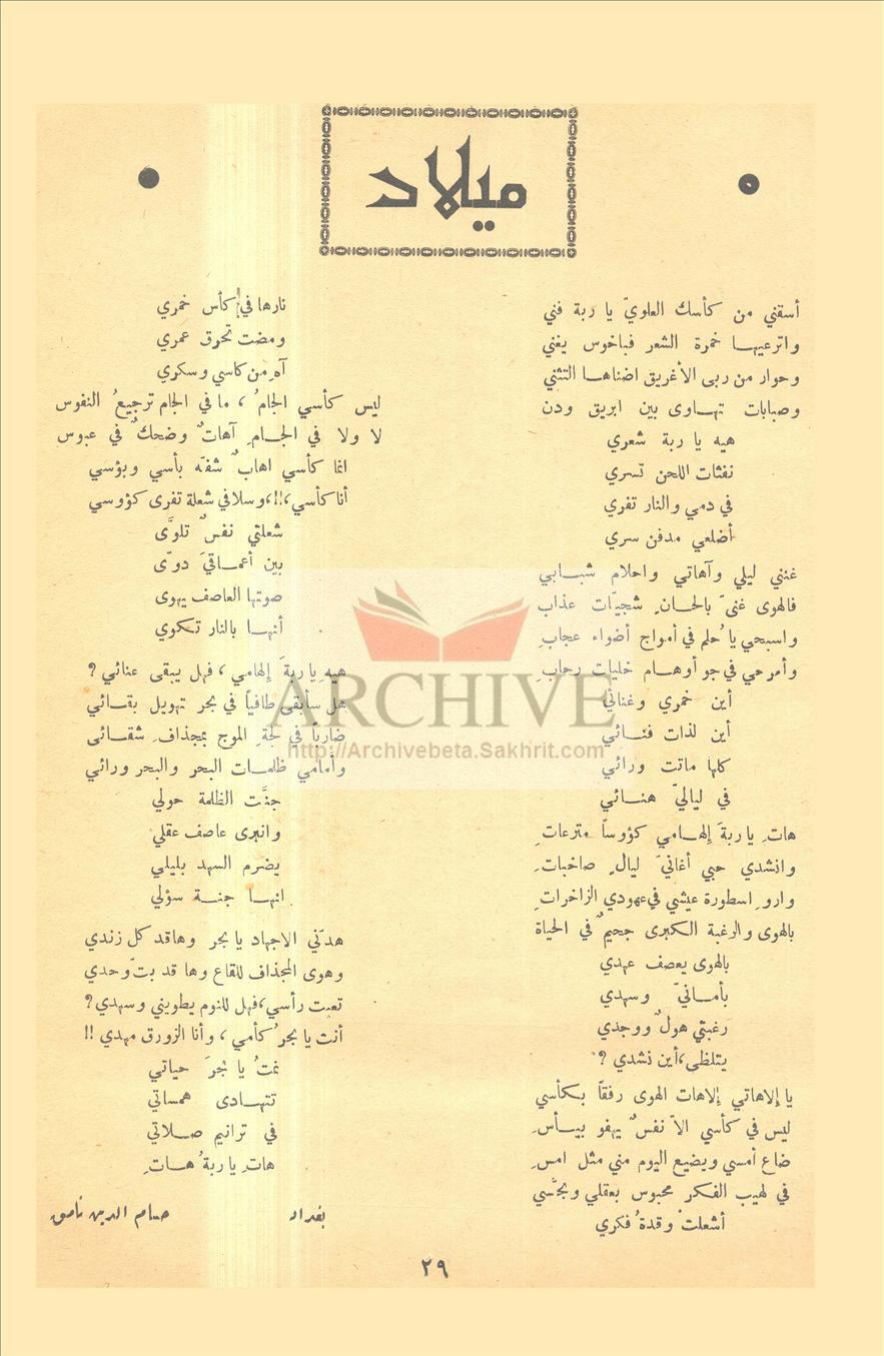 ميلاد
أسقني من كأسك العلويّ يا ربة فني
واترعيها خمرة الشعر فباخوس يغني
وحوار من ربى الأغريق اضناها التثني
وصبابات تهاوى بين ابريق ودن
هيه يا ربة شعري
نفثات اللحن تسري
في دمي والنار تفري
أضلعي مدفن سري
غنني ليلي وآهاتي واحلام شبابي
فالهوى غنىّ بالحانٍ شجيّات عذاب
واسبحي يا حُلم في أمواج أضواء عجابِ
وأمرحي في جو أوهام خليات رحابِ
أين خمري وغنائي
أين لذات فنائي
كلها ماتت ورائي
في ليالىّ هنائي
هاتِ يا ربةَ إلهامي كؤوساً مترعاتِ
وانشدي حبي أغانيَ ليالٍ صاخباتِ
واروِ اسطورة عيشي في عهودي الزاخراتِ
بالهوى والرغبة الكبرى جحيمٌ في الحياة
بالهوى يعصف عهدي
بأمانيّ وسهدي
رغبتي هولٌ ووجدي
يتلظى، أين نشدي ؟
يا إلاهاتي إلاهات الهوى رفقاً بكأسي
ليس في كأسي الاّ نفسٌ يهفو بيأسِ
ضاع أمسي ويضيع اليوم مني مثل امسِ
في لهيب الفكر محبوس بعقلي وبحسّي
أشعلتْ وقدةُ فكري
نارها في كأس خمري
ومضت تحرق عمري
آهِ من كاسي وسكري
ليس كأسي الجامُ ، ما في الجام ترجيعُ النفوس
لا ولا في الجامِ آهاتٌ وضحكٌ في عبوس
انما كأسي اهابٌ شفّه بأسي وبؤسي
أنا كأسي،!!،وسلافي شعلة تفرى كؤوسي
شعلتي نفسٌ تلوَّى
بين أعماقيَ دوّى
صوتها العاصف يهوى
أنها بالنار تكوي
هيهِ يا ربةَ إلهامي ، فهل يبقى عنائي ؟
هل سأبقى طافياً في بحر تهويل بقائي
ضارباً في لجةِ الموج بمجذافِ شقائى
وأمامي ظلمات البحر والبحر ورائي
جنَّت الظلمة حولي
وانبرى عاصف عقلي
يضرم السهد بليلي
انها جنة سؤلي
هدّني الاجهاد يا بحر وها قد كل زندي
وهوى المجذاف للقاع وها قد بتّ وحدي
تعبت رأسي، فهل للنوم يطويني وسهدي؟
أنت يا بحرُ كأمي ، وأنا الزورق مهدي !!
نمتُ يا بحرَ حياتي
تتهادى همساتي
في ترانيم صلاتي
هاتِ يا ربةُ هاتِ
بغداد
حسام الدين ناصر
٢٩
ARCHIVE
http://Archivebeta.Sakhrit.com